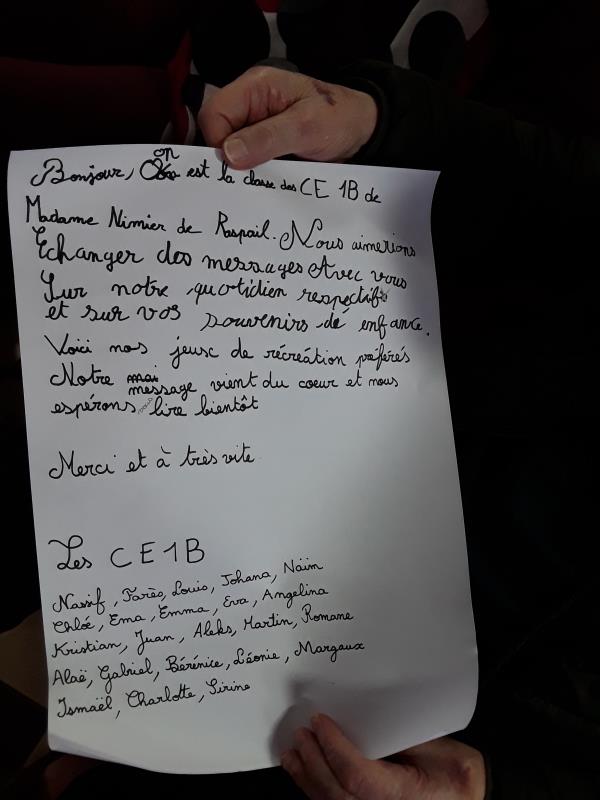 Bonjour, on est la classe des CE 1B de
Madame Nimier de Raspail. Nous aimerions
Echanger des messages Avec vous
Sur notre quotidien respectifs
et sur vos souvenirs de enfance.
Voici nos jeusc de récréation préférés
Notre message vient du coeur et nous
espérons vous lire bientôt
Merci et à très vite
Les CE1B
Nassif, Farès, Louis, Johana, Naïm
Chloé, Ema, Emma, Eva, Angelina
Kristian, Juan, Aleks, Martin, Romane
Alaë, Gabriel, Bérénice, Léonie, Margaux
Ismaël, Charlotte, Sirine